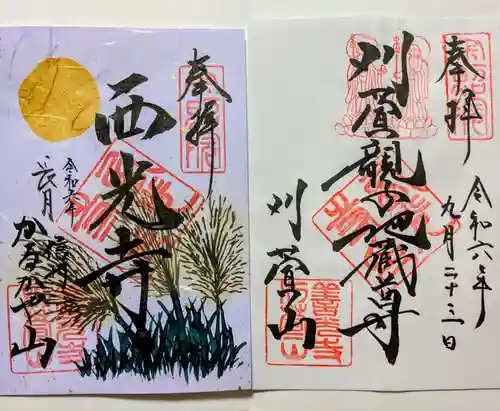 奉拝
西光寺
令和六年
長月
信州
かるかや山
奉拝
令和六年
九月二十三日
刈萱親子地蔵尊
刈萱山